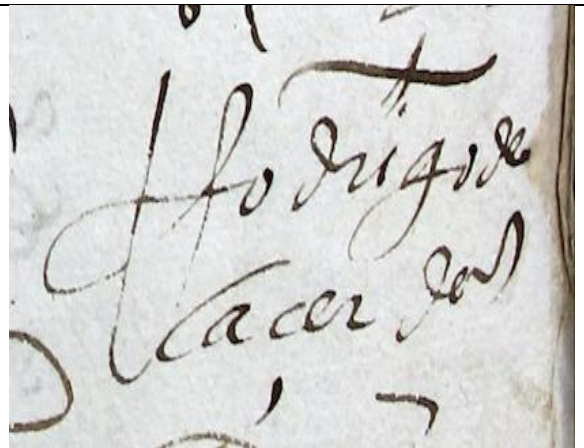 Rodrigo de
Cacer